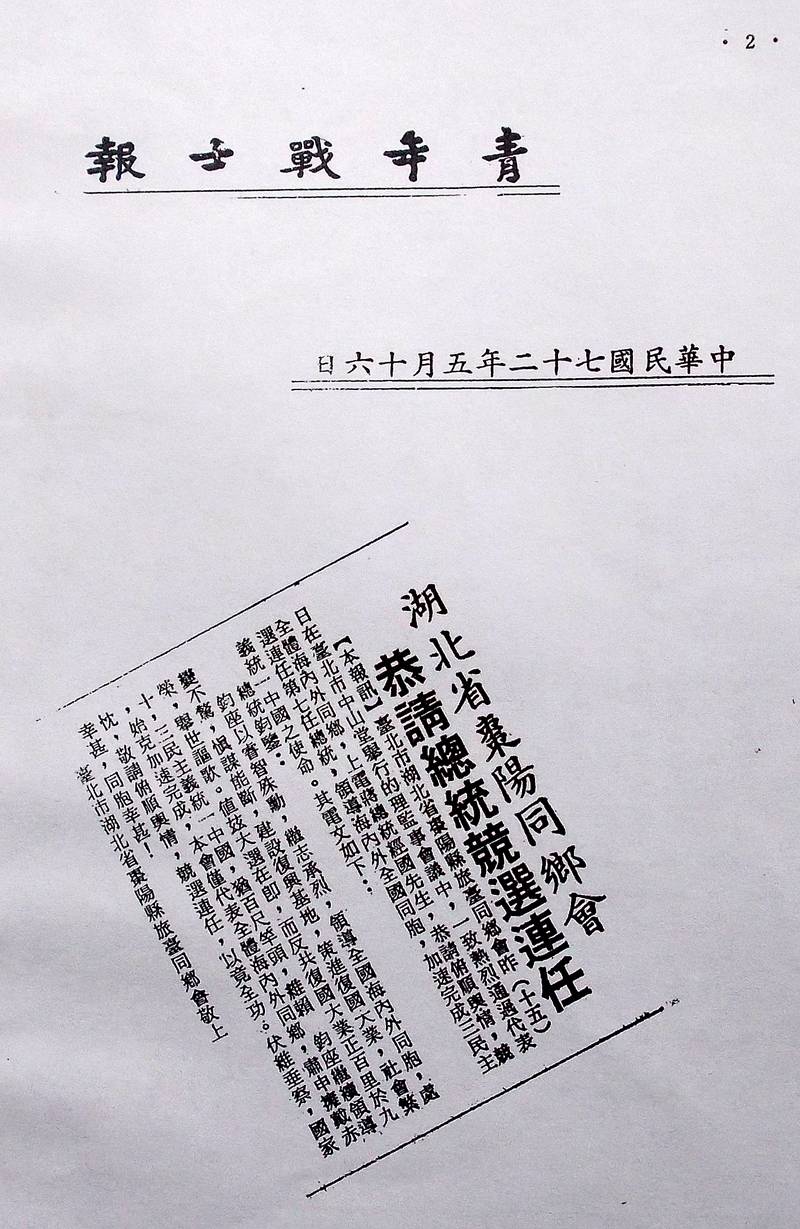 · 2 ·
青年戰士報
中華民國七十二年五月十六日
湖北省棗陽同鄉會
恭請總統競選連任
【本報訊】臺北市湖北省棗陽縣旅臺同鄉會昨（十五）
日在臺北市中山堂舉行的理監事會議中，一致熱烈通過代表
全體海內外同鄉，上電蔣總統經國先生，恭請俯順輿情，競
選連任第七任總統，領導海內外全國同胞，加速完成三民主
義統一中國之使命。其電文如下：
總統鈞鑒：
鈞座以睿智殊勳，繼志承烈，領導全國海內外同胞，處
變不驚，慎謀能斷，建設復興基地，策進復國大業，社會繁
榮，舉世謳歌。值茲大選在即，而反共復國大業正百里於九
十，三民主義統一中國，猶百尺竿頭，維賴 鈞座繼續領導
，始克加速完成，本會僅代表全體海內外同鄉，肅申擁戴赤
忱，敬請俯順輿情，競選連任，以竟全功。伏維垂察，國家
幸甚，同胞幸甚！
臺北市湖北省棗陽縣旅臺同鄉會敬上